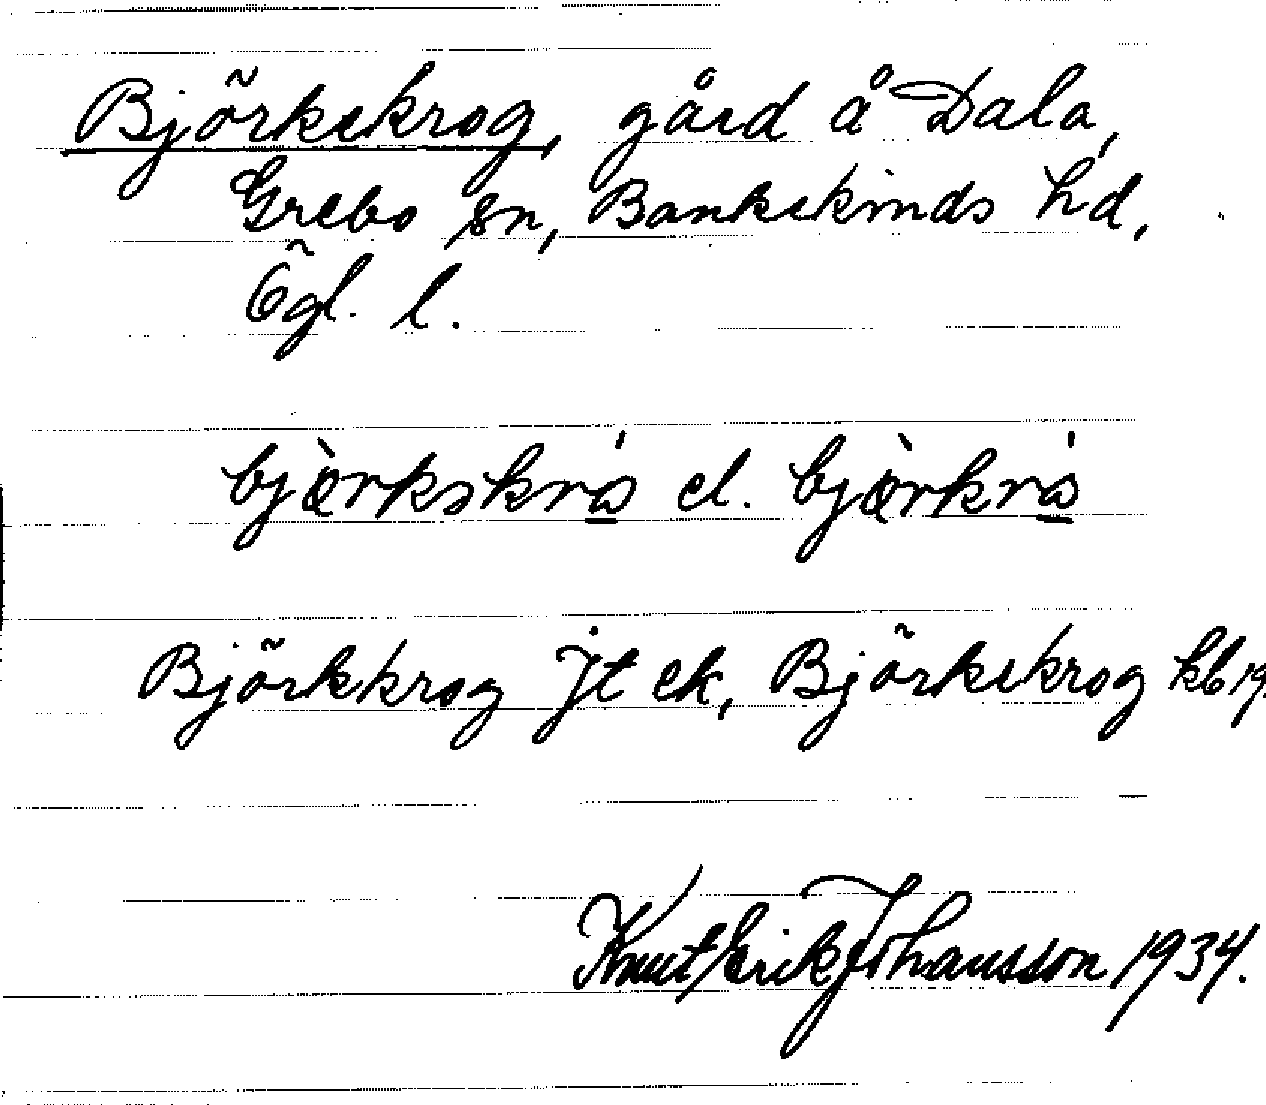 Björkskrog, gård å Dala,
Grebo sn, Bankekinds hd,
Ögl. l.
bjə̀rkskrá el. bjə̀rkrá
Björkkrog Jt ek, Björkskrog kb 19.
Knut Erik Johansson 1934.